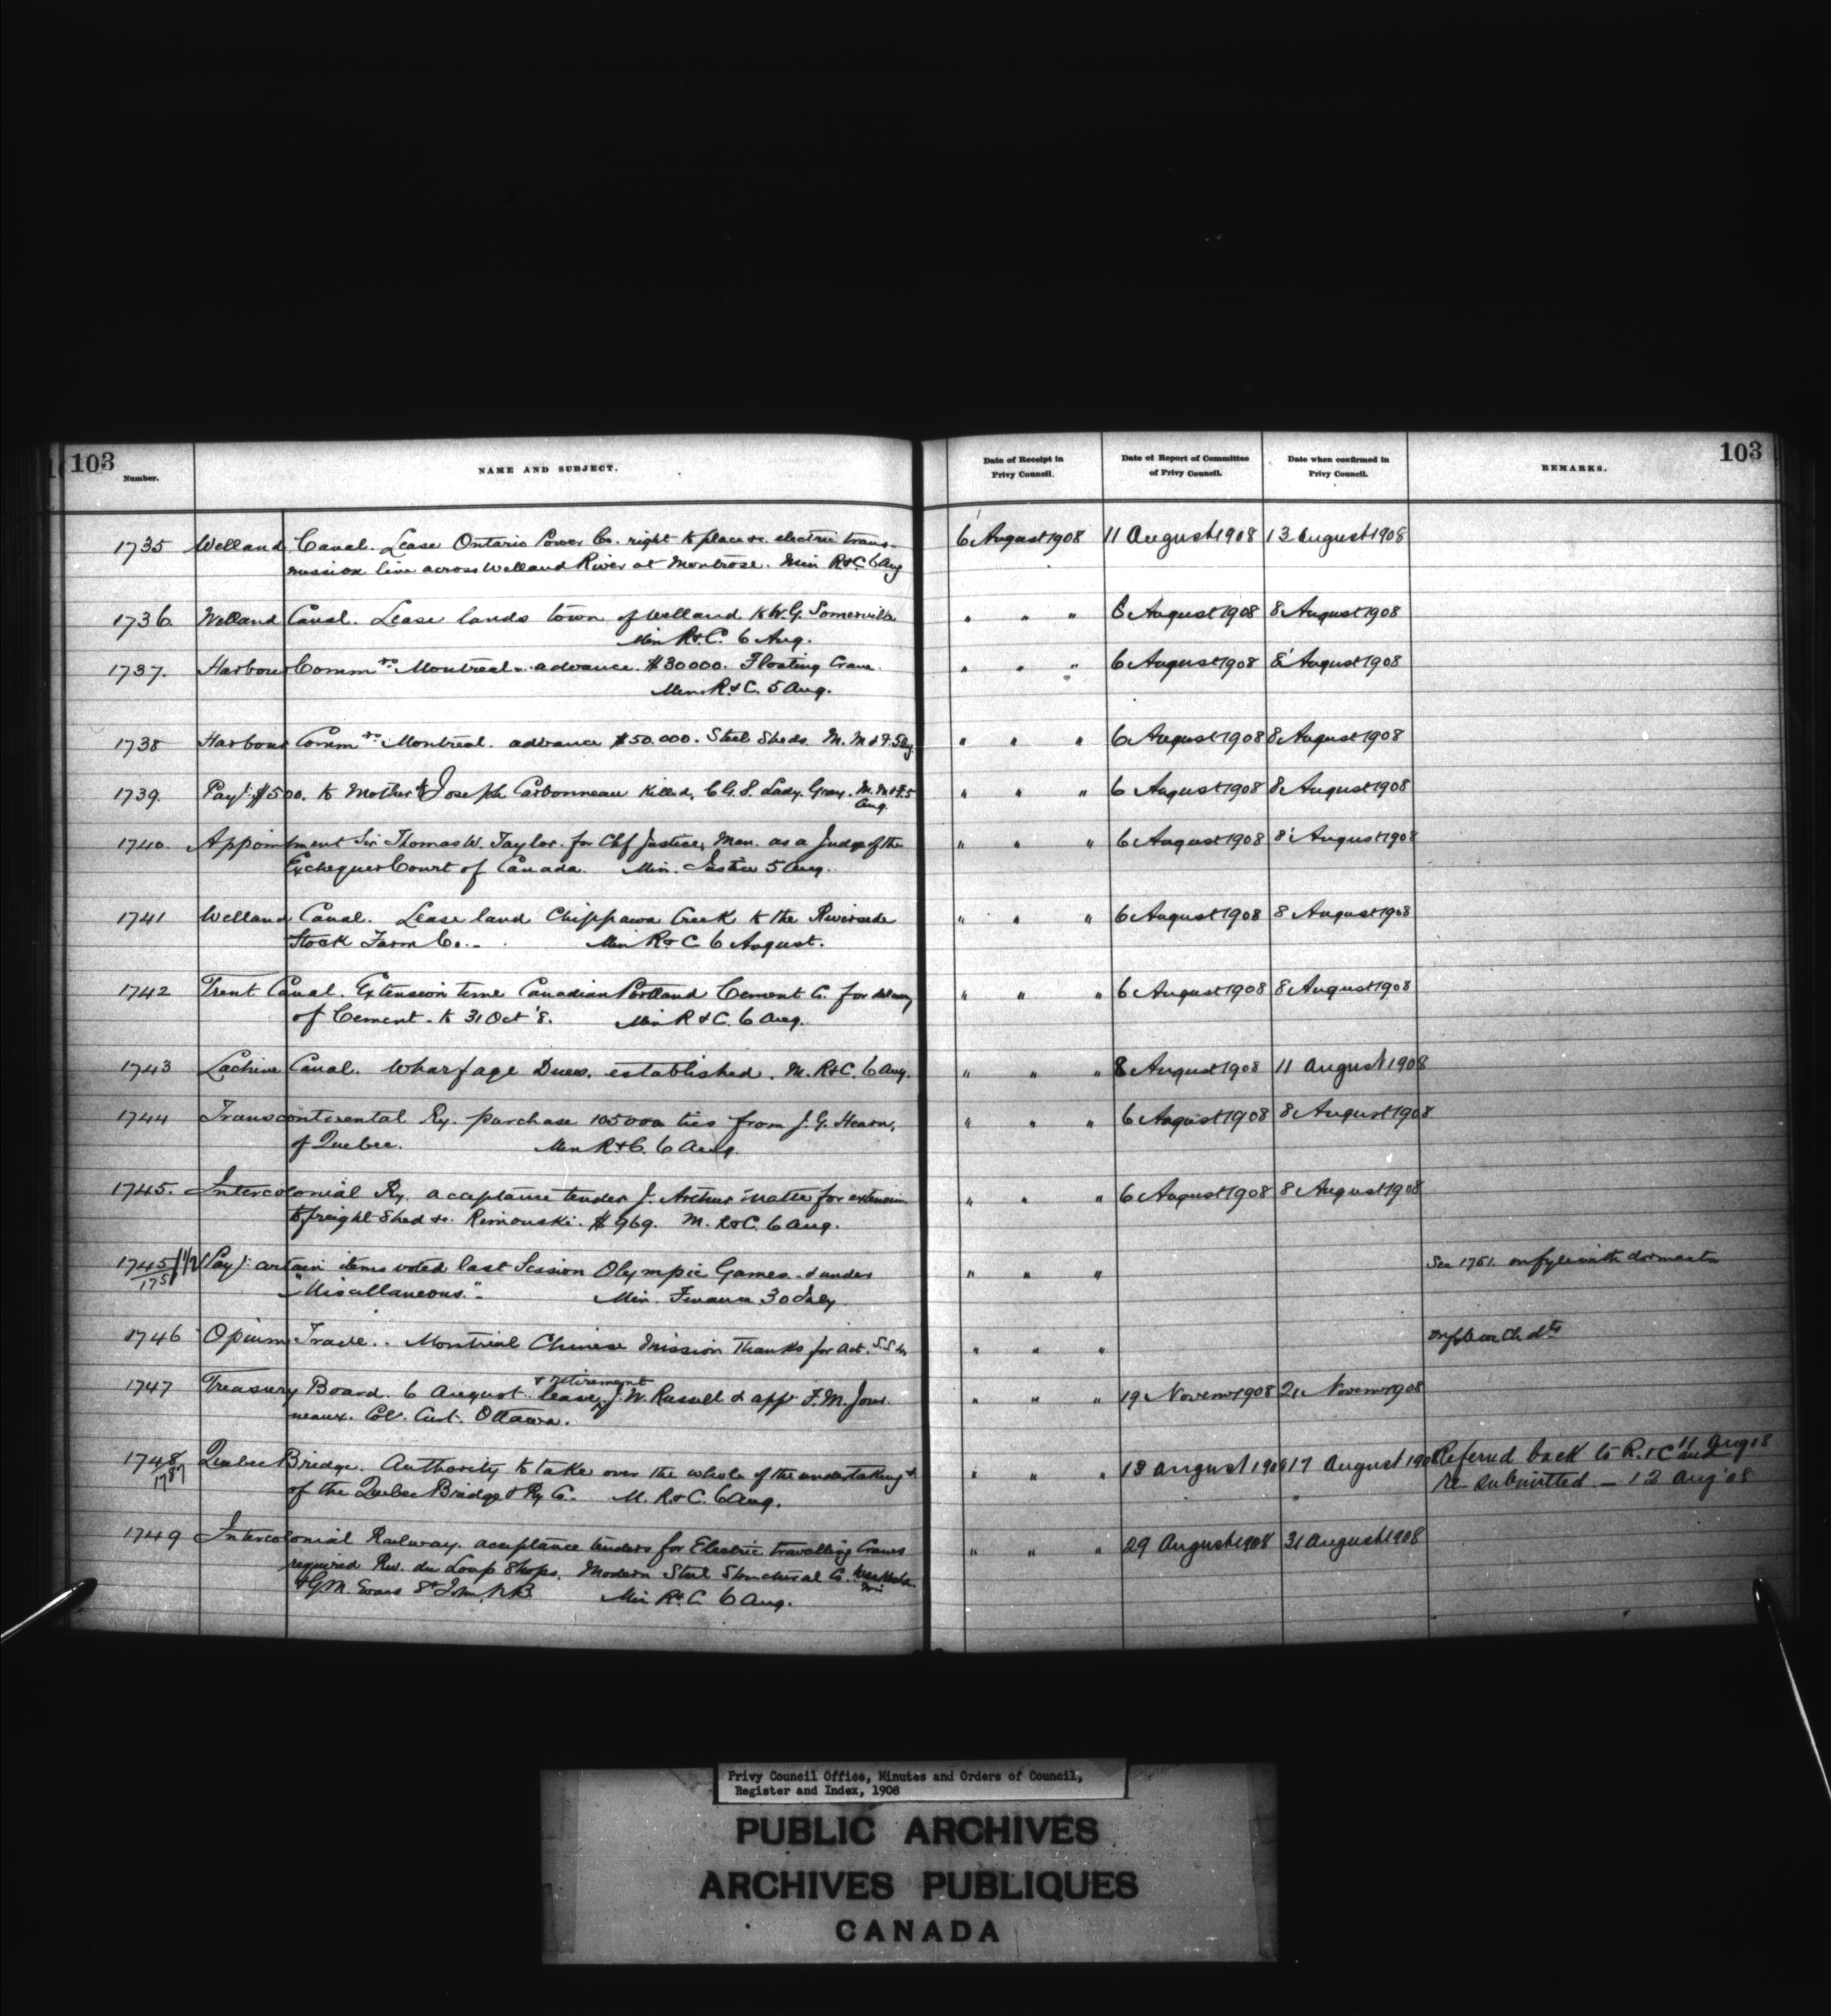 103
Number.
NAME AND SUBJECT.
Date of Receipt in Privy Council.
Date of Report of Committee of Privy Council.
Date when confirmed in Privy Council.
REMARKS.
103
1735 Welland Canal. Lease Ontario Power Co. right to place &c. electric trans- 6 August 1908 11 August 1908 13 August 1908
mission line across Welland River at Montrose. Min R&C. 6 Aug
1736. Welland Canal. Lease lands town of Welland to W.G. Somerville " " " 6 August 1908 8 August 1908
Min R&C. 6 Aug.
1737. Harbour Commrs. Montreal. advance. $30000. Floating Crane. " " " 6 August 1908 8 August 1908
Min. R&C. 5 Aug.
1738 Harbour Commrs. Montreal. advance $50.000. Steel Sheds. M. M&F. 5 Aug. " " " 6 August 1908 8 August 1908
1739. Payt. $500. to Mother of Joseph Carbonneau killed, C.G.S. Lady Grey. M. M&F. 5 " " " 6 August 1908 8 August 1908
Aug.
1740. Appointment Sir Thomas W. Taylor. for Chf Justice, Man. as a Judge of the " " " 6 August 1908 8 August 1908
Exchequer Court of Canada. Min. Justice 5 Aug.
1741 Welland Canal. Lease land Chippawa Creek to the Riverside " " " 6 August 1908 8 August 1908
Stock Farm Co. Min R&C 6 August.
1742 Trent Canal. Extension time Canadian Portland Cement Co. for delivery " " " 6 August 1908 8 August 1908
of Cement. to 31 Oct '8. Min R&C. 6 Aug.
1743 Lachine Canal. Wharfage Dues. established. M. R&C. 6 Aug. " " " 8 August 1908 11 August 1908
1744 Transcontinental Ry. purchase 105000 ties from J.G. Hearn, " " " 6 August 1908 8 August 1908
of Quebec. Min R&C. 6 Aug.
1745. Intercolonial Ry. acceptance tender J. Arthur for extension " " " 6 August 1908 8 August 1908
to freight Shed &c. Rimouski. $969. M. R&C. 6 Aug.
1745 1/2 Payt. certain items voted last Session Olympic Games. & under " " " See 1751. on fyle with
1751 "Miscellaneous." Min. Finance 30 July
1746 Opium Trade.. Montreal Chinese Mission Thanks for Act. " " "
& retirement
1747 Treasury Board. 6 August. leave J. W. Russell & appt F. M. Jour " " " 19 Novemr 1908 21 Novemr 1908
neaux. Col. Cust. Ottawa.
1748 Quebec Bridge. Authority to take over the whole of the undertaking &c " " " 13 August 1908 17 August 1908 Referred back to R.&C 11 Aug 08 and
1787 of the Quebec Bridge & Ry Co. M. R&C. 6 Aug. re submitted – 12 Aug '08
1749 Intercolonial Railway. acceptance tenders for Electric travelling Cranes " " " 29 August 1908 31 August 1908
required Riv. du Loup Shops. Modern Steel Structural Co. Waukesha. Wis
& G.M. Evans St John, N.B. Min R&C 6 Aug.
Privy Council Office, Minutes and Orders of Council,
Register and Index, 1908
PUBLIC ARCHIVES
ARCHIVES PUBLIQUES
CANADA